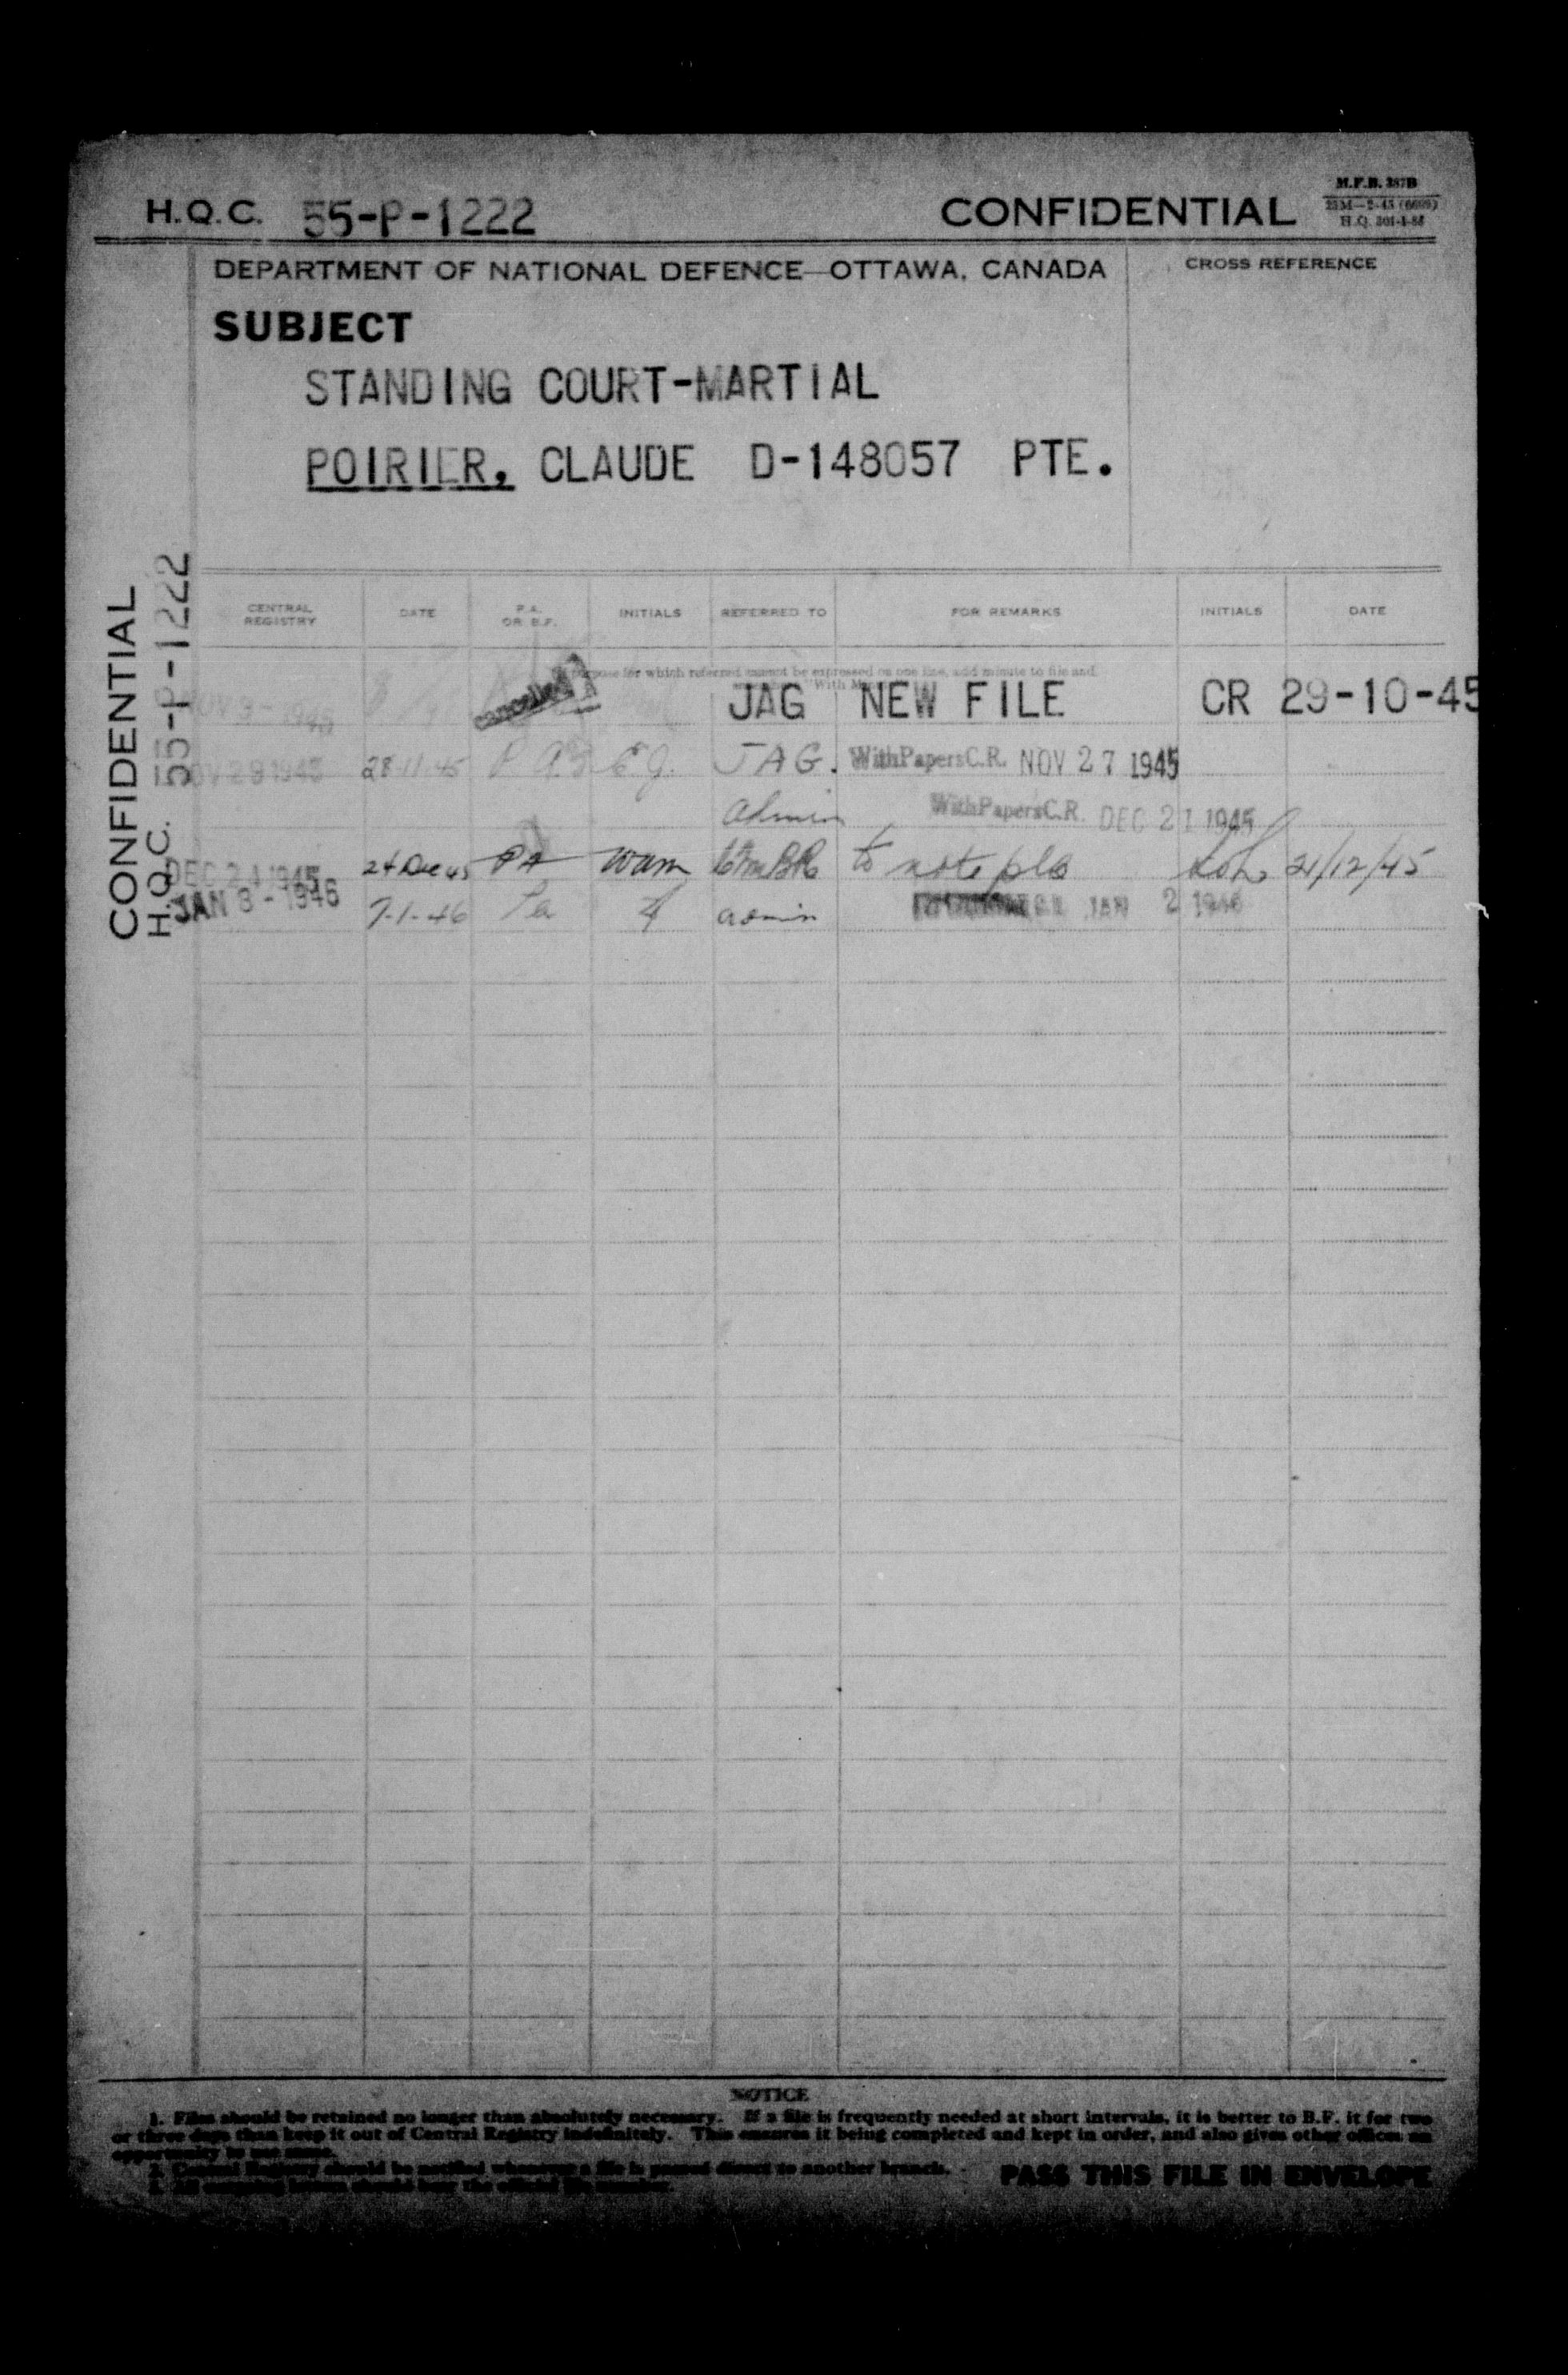 H.Q.C. 55-P-1222
CONFIDENTIAL
M.F.B. 387B
H.Q. 301-1-88
DEPARTMENT OF NATIONAL DEFENCE—OTTAWA, CANADA
CROSS REFERENCE
SUBJECT
STANDING COURT-MARTIAL
POIRIER, CLAUDE D-148057 PTE.
CONFIDENTIAL
H.Q.C. 55-P-1222
CENTRAL REGISTRY DATE P.A. OR B.F. INITIALS REFERRED TO FOR REMARKS INITIALS DATE
purpose for which referred cannot be expressed on one line, add minute to file and
Cancelled JAG NEW FILE CR 29-10-45
NOV 29 1945 28-11-45 P.A. JAG. With Papers C.R. NOV 27 1945
admin With Papers C.R. DEC 21 1945
DEC 24 1945 24 Dec 45 PA to note pls 21/12/45
JAN 8 - 1946 7-1-46 Pa admin JAN 2 1946
NOTICE
1. Files should be retained no longer than absolutely necessary. If a file is frequently needed at short intervals, it is better to B.F. it for two
or three days than keep it out of Central Registry indefinitely. This ensures it being completed and kept in order, and also gives other offices an
opportunity to use same.
2. Central Registry should be notified whenever a file is passed direct to another branch.
PASS THIS FILE IN ENVELOPE